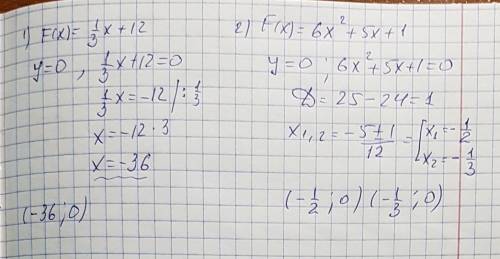 1) F(x) = 1/3 x + 12
y=0 , 1/3 x + 12 = 0
1/3 x = -12 | : 1/3
x = -12 · 3
x = -36
(-36 ; 0)
2) F(x) = 6x² + 5x + 1
y=0 ; 6x² + 5x + 1 = 0
D = 25 - 24 = 1
x1,2 = (-5 ± 1)/12 = [x1 = -1/2
x2 = -1/3
(-1/2 ; 0) (-1/3 ; 0)